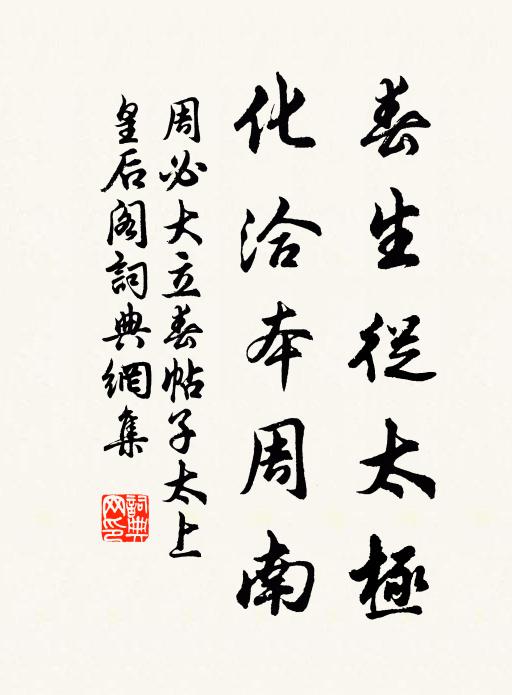 春生從太極
化洽本周南
周必大立春帖子太上
皇后閣詞典網集
詞典網印